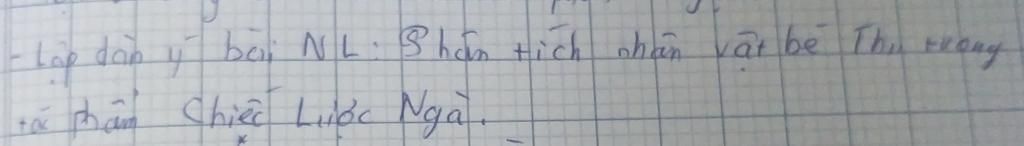 - Lập dàn ý bài NL: Phân tích nhân vật bé Thu trong
tác phẩm Chiếc Lược Ngà.